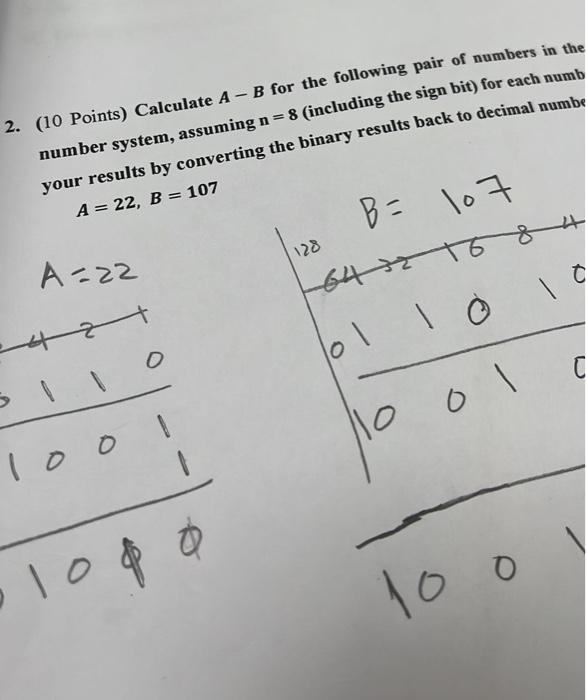 2. (10 Points) Calculate A – B for the following pair of numbers in the
number system, assuming n = 8 (including the sign bit) for each numb
your results by converting the binary results back to decimal numbe
A = 22, B = 107
A = 22
4 2 1
1 1 0
1 0 0 1
1
1 0 0 0
B = 107
128 64 32 16 8 4
0 1 1 0 1 0
1 0 0 1 0
1 0 0 1